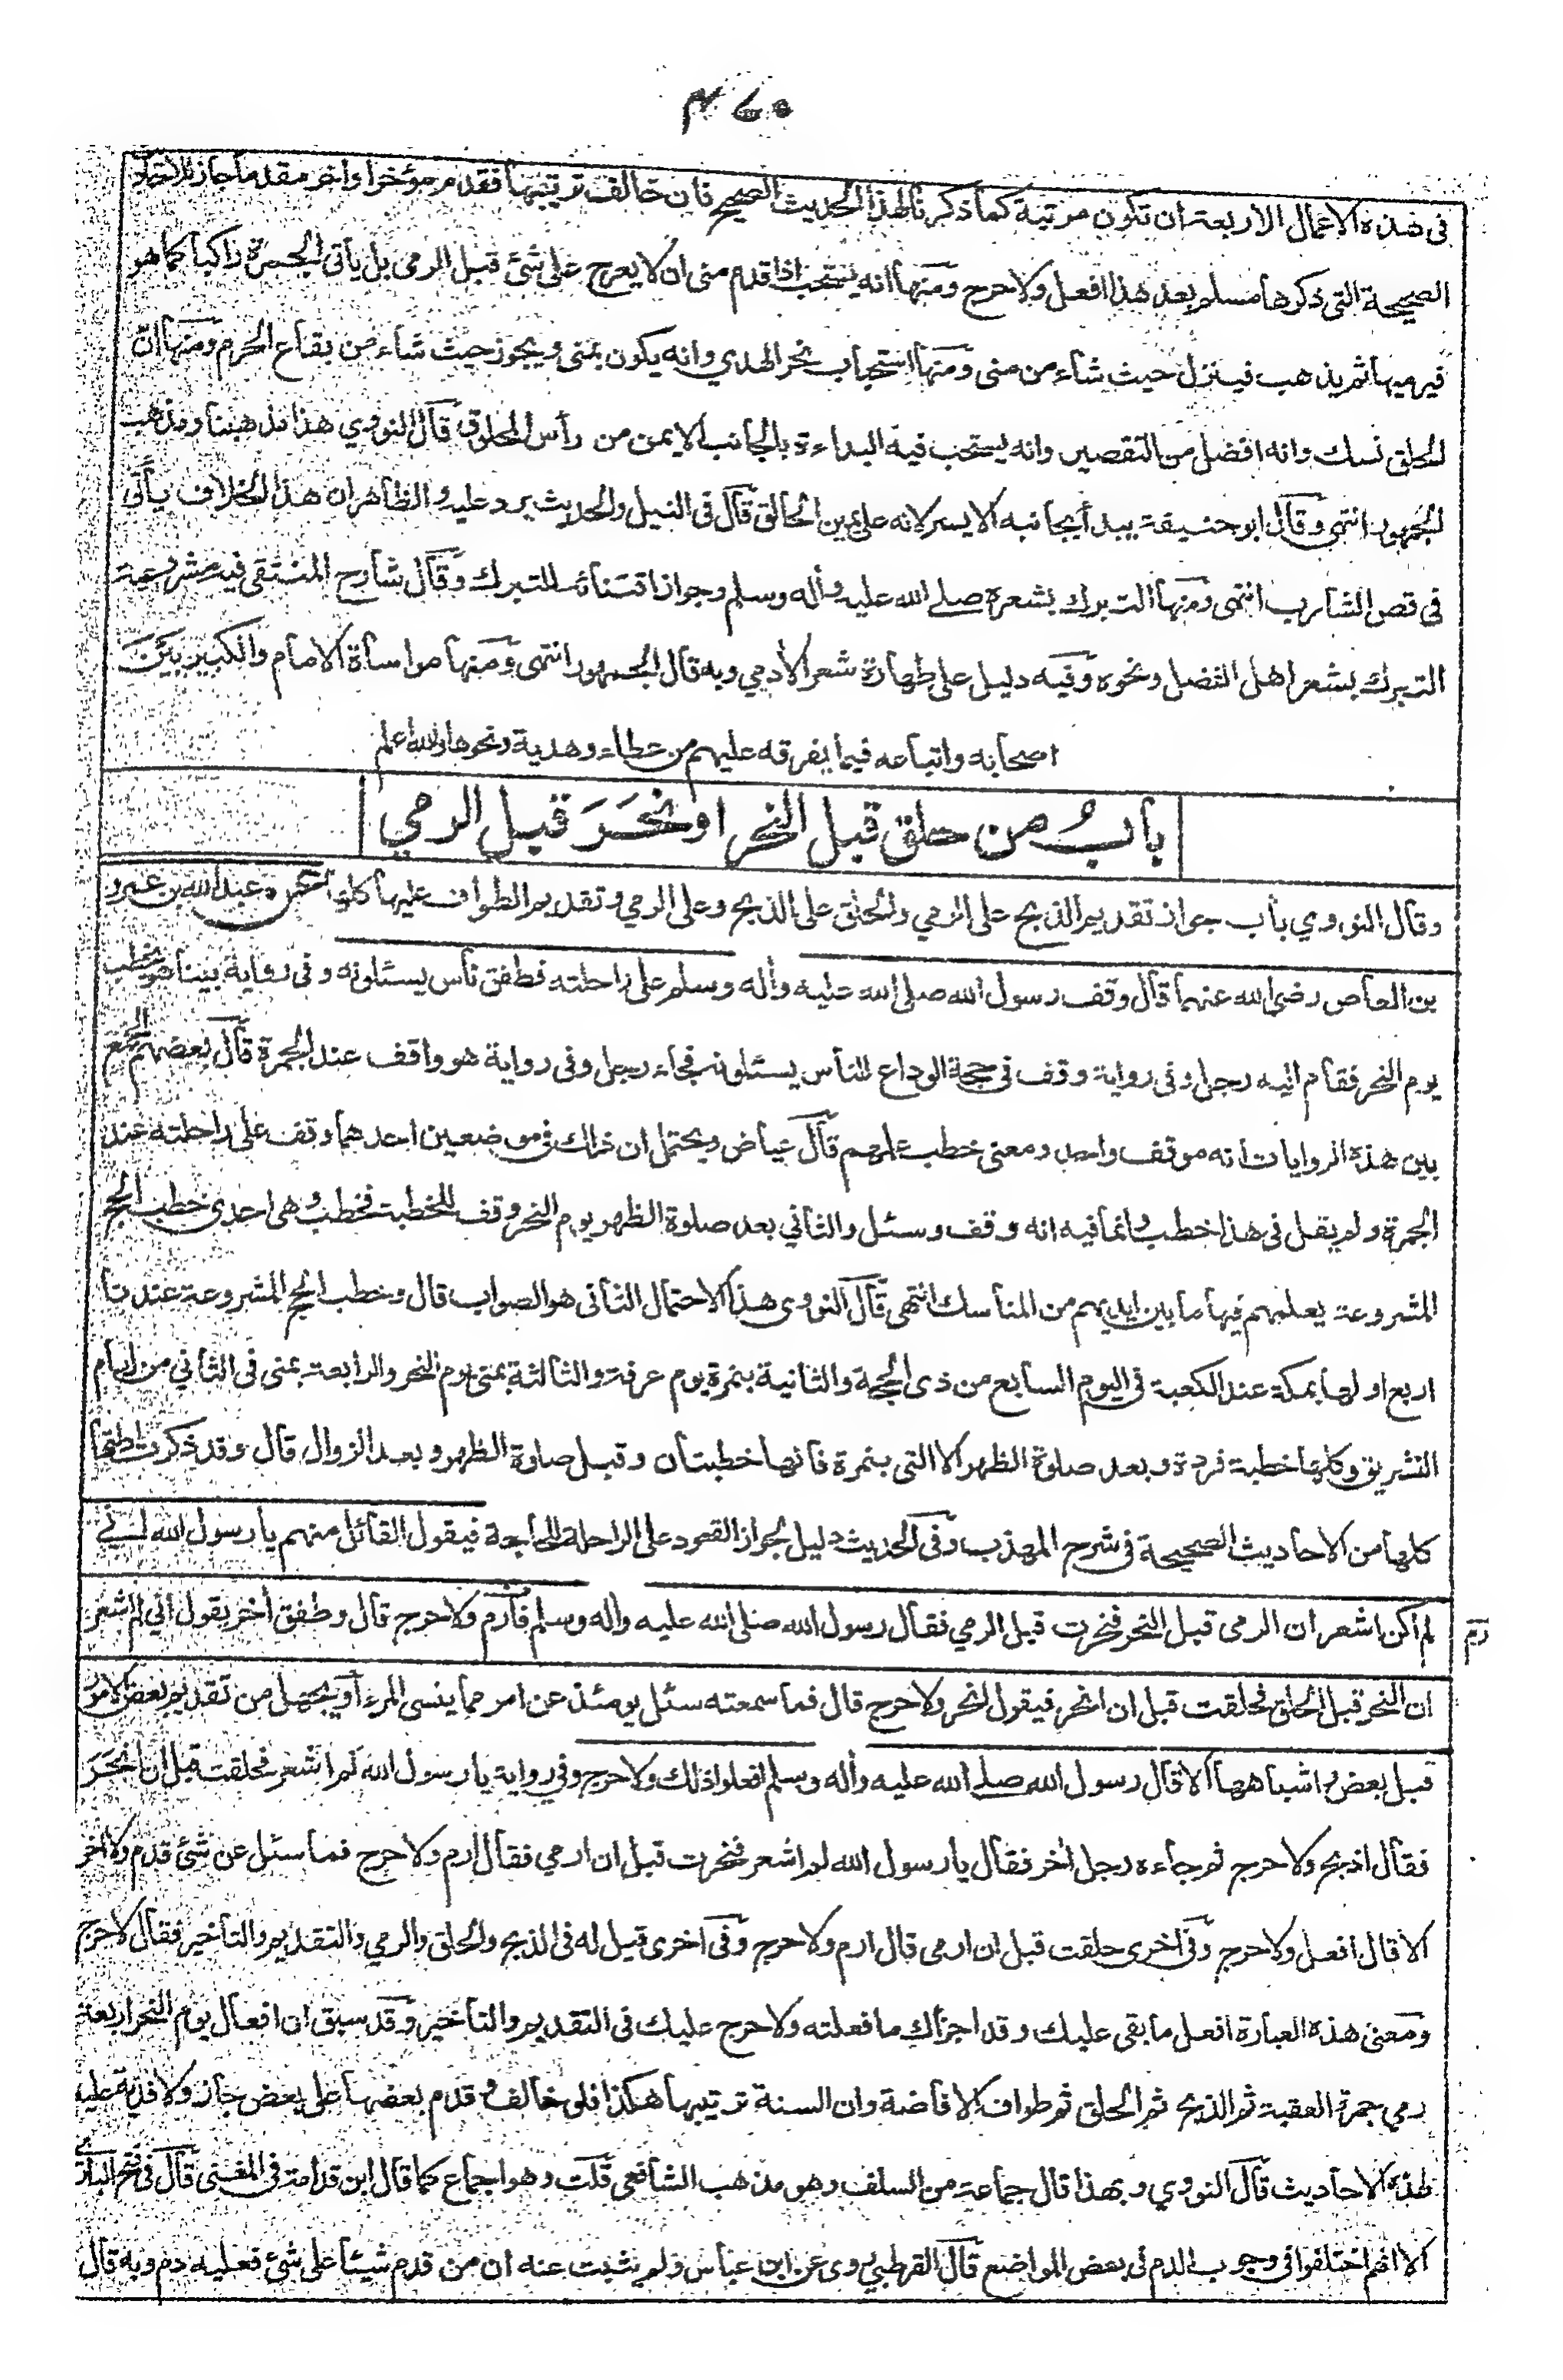 في هذه الاعمال الاربعة ان تكون مرتبة كما ذكرنا لهذا الحديث الصحيح فان خالف ترتيبها فقدم مؤخرا واخر مقدما جاز للاحاديث
الصحيحة التي ذكرها مسلم بعد هذا افعل ولا حرج ومنها انه يستحب اذا قدم منى ان لا يعرج على شئ قبل الرمي بل يأتي الجمرة راكبا كما هو
فيرميها ثم يذهب فينزل حيث شاء من منى ومنها استحباب نحر الهدي وانه يكون بمنى ويجوز حيث شاء من بقاع الحرم ومنها ان
الحلق نسك وانه افضل من التقصير وانه يستحب فيه البداءة بالجانب الايمن من رأس المحلوق قال النووي هذا مذهبنا ومذهب
الجمهور انتهى وقال ابو حنيفة يبدأ بجانبه الايسر لانه على يمين الحالق قال في النيل والحديث يرد عليه والظاهر ان هذا الخلاف يأتي
في قص الشارب انتهى ومنها التبرك بشعره صلى الله عليه وأله وسلم وجواز اقتنائه للتبرك وقال شارح المنتقى فيه مشروعية
التبرك بشعر اهل الفضل ونحوه وفيه دليل على طهارة شعر الأدمي وبه قال الجمهور انتهى ومنها مواساة الامام والكبير بين
اصحابه واتباعه فيما يفرقه عليهم من عطاء وهدية ونحوها والله اعلم
باب من حلق قبل النحر او نحر قبل الرمي
وقال النووي باب جواز تقديم الذبح على الرمي والحلق على الذبح وعلى الرمي وتقديم الطواف عليها كلها عن عبد الله بن عمرو
بن العاص رضي الله عنهما قال وقف رسول الله صلى الله عليه وأله وسلم على راحلته فطفق ناس يسئلونه وفي رواية بينا هو يخطب
يوم النحر فقام اليه رجل وفي رواية وقف في حجة الوداع للناس يسئلونه فجاء رجل وفي رواية هو واقف عند الجمرة قال بعضهم الجمع
بين هذه الروايات انه موقف واحد ومعنى خطب علمهم قال عياض ويحتمل ان ذلك في موضعين احدهما وقف على راحلته عند
الجمرة ولم يقل في هذا خطب وانما فيه انه وقف وسئل والثاني بعد صلوة الظهر يوم النحر وقف للخطبة فخطب وهي احدى خطب الحج
المشروعة يعلمهم فيها ما بين ايديهم من المناسك انتهى قال النووي هذا الاحتمال الثاني هو الصواب قال وخطب الحج المشروعة عندنا
اربع اولها بمكة عند الكعبة في اليوم السابع من ذي الحجة والثانية بنمرة يوم عرفة والثالثة بمنى يوم النحر والرابعة بمنى في الثاني من ايام
التشريق وكلها خطبة فردة وبعد صلوة الظهر الا التي بنمرة فانها خطبتان وقبل صلوة الظهر وبعد الزوال قال وقد ذكرت ادلتها
كلها من الاحاديث الصحيحة في شرح المهذب وفي الحديث دليل لجواز القعود على الراحلة للحاجة فيقول القائل منهم يا رسول الله اني
لم اكن اشعر ان الرمي قبل النحر فنحرت قبل الرمي فقال رسول الله صلى الله عليه واله وسلم فارم ولا حرج قال وطفق أخر يقول اني لم اشعر
ان النحر قبل الحلق فحلقت قبل ان انحر فيقول انحر ولا حرج قال فما سمعته سئل يومئذ عن امر مما ينسى المرء او يجهل من تقديم بعض الامور
قبل بعض واشباهها الا قال رسول الله صلى الله عليه وأله وسلم افعلوا ذلك ولا حرج وفي رواية يا رسول الله لم اشعر فحلقت قبل ان انحر
فقال اذبح ولا حرج ثم جاءه رجل أخر فقال يا رسول الله لم اشعر فنحرت قبل ان ارمي فقال ارم ولا حرج فما سئل عن شئ قدم ولا اخر
الا قال افعل ولا حرج وفي اخرى حلقت قبل ان ارمي قال ارم ولا حرج وفي اخرى قيل له في الذبح والحلق والرمي والتقديم والتأخير فقال لا حرج
ومعنى هذه العبارة افعل ما بقي عليك وقد اجزأك ما فعلته ولا حرج عليك في التقديم والتأخير وقد سبق ان افعال يوم النحر اربعة
رمي جمرة العقبة ثم الذبح ثم الحلق ثم طواف الافاضة وان السنة ترتيبها هكذا فلو خالف وقدم بعضها على بعض جاز ولا فدية عليه
لهذه الاحاديث قال النووي وبهذا قال جماعة من السلف وهو مذهب الشافعي قلت وهو اجماع كما قال ابن قدامة في المغني قال في فتح الباري
الا انهم اختلفوا في وجوب الدم في بعض المواضع قال القرطبي روى عن ابن عباس ولم يثبت عنه ان من قدم شيئا على شئ فعليه دم وبه قال